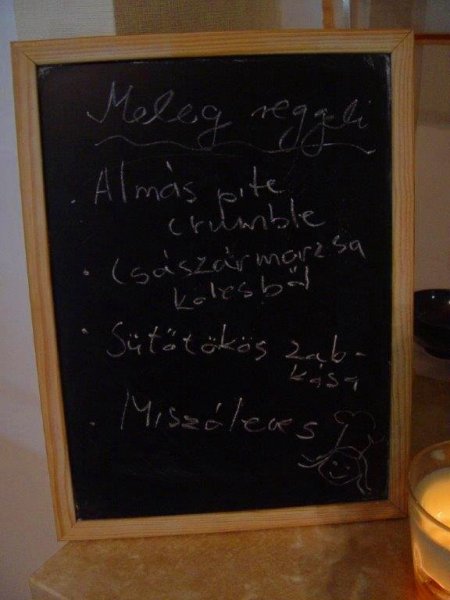 Meleg reggeli
• Almás pite
crumble
• Császármorzsa
kölesből
• Sütőtökös zab-
kása
• Miszóleves